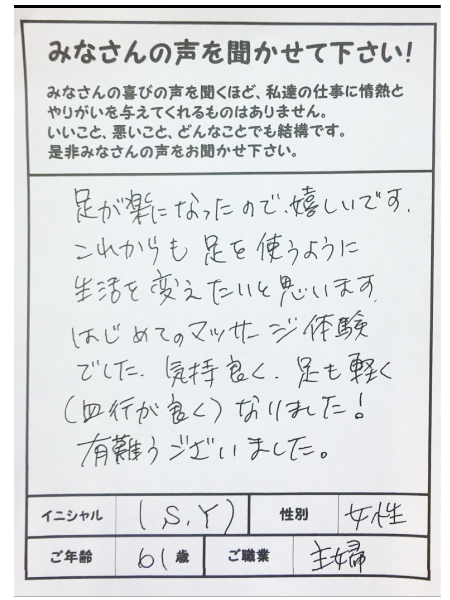 みなさんの声を聞かせて下さい!
みなさんの喜びの声を聞くほど、私達の仕事に情熱と
やりがいを与えてくれるものはありません。
いいこと、悪いこと、どんなことでも結構です。
是非みなさんの声をお聞かせ下さい。
足が楽になったので、嬉しいです。
これからも足を使うように
生活を変えたいと思います。
はじめてのマッサージ体験
でした。気持良く、足も軽く
(血行が良く)なりました!
有難うございました。
イニシャル (S,Y) 性別 女性
ご年齢 61歳 ご職業 主婦